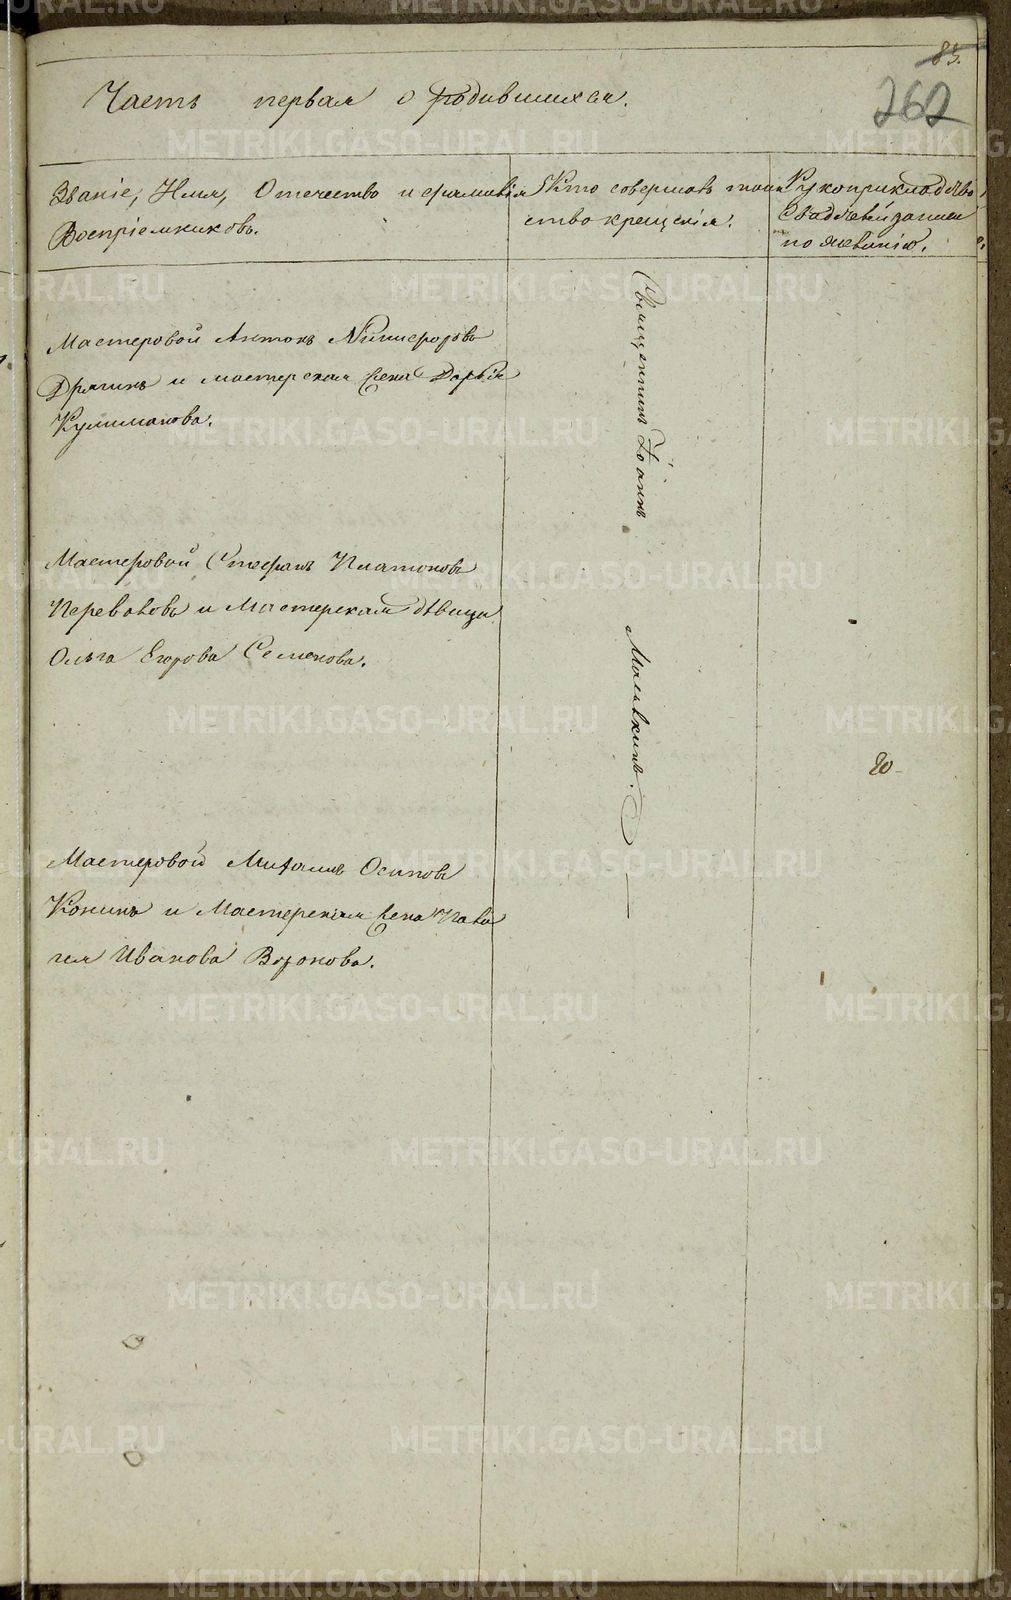 83.
262
Часть первая о родившихся.
Званіе, Имя, Отечество и фамилія
Воспріемниковъ.
Кто совершалъ таин
ство крещенія.
Рукоприкладство
свидѣтелей записи
по желанію.
Мастеровой Антонъ Никифоровъ
Дрягинъ и мастерская жена Дарья
Кулимакова.
Мастеровой Стефанъ Платоновъ
Переваловъ и Мастерская дѣвица
Ольга Егорова Семенова.
Мастеровой Михаилъ Осиповъ
Конинъ и Мастерская жена Пела
гея Иванова Воронова.
Священникъ Іоаннъ
Малѣкинъ.
METRIKI.GASO-URAL.RU